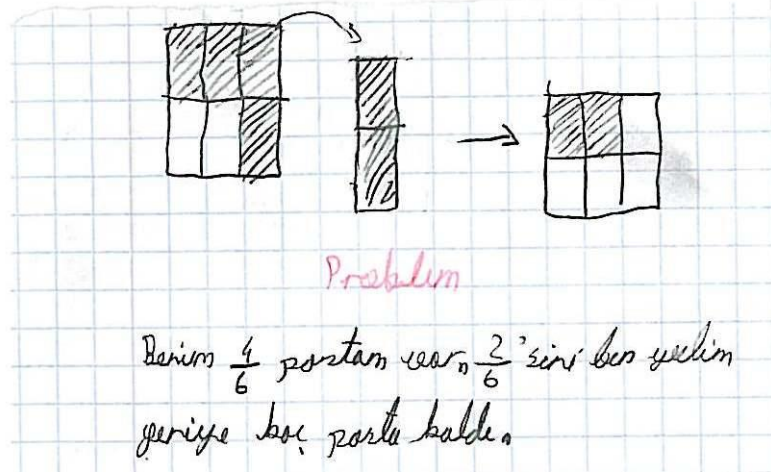 Problem
Benim 4/6 pastam var, 2/6'sini ben yedim
geriye kaç pasta kaldı.